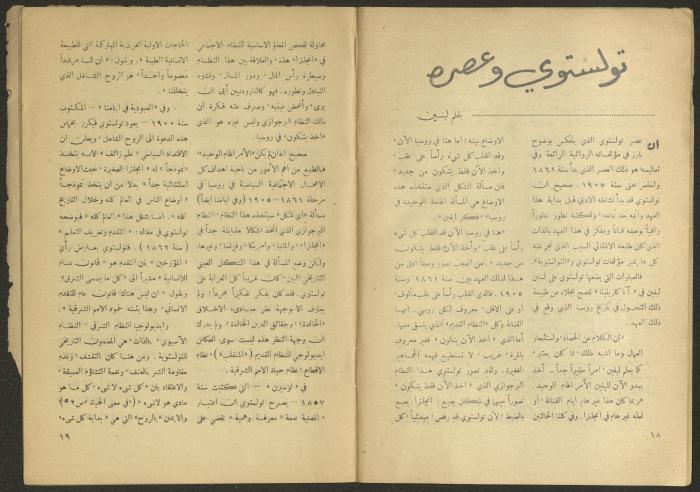 تولستوي وعصره
بقلم لينين
ان عصر تولستوي الذي ينعكس بوضوح
بارز في مؤلفاته الروائية الرائعة وفي
تعاليمه هو ذلك العصر الذي بدأ سنة ١٨٦١
واستمر حتى سنة ١٩٠٥. صحيح ان
تولستوي قد بدأ نشاطه الادبي قبل بداية هذا
العهد وانه بعد نهايته، ولكنه تطور تطوراً
وافياً بوصفه فناناً ومفكراً في هذا العهد بالذات
الذي كان طابعه الانتقالي السبب الذي نجم عنه
كل ما يميز مؤلفات تولستوي و«التولستوية».
فالعبارات التي يضعها تولستوي على لسان
ليفين في «آنا كارنينا» تفصح بجلاء عن طبيعة
ذلك التحول في تاريخ روسيا الذي وقع في
ذلك العهد.
«ان الكلام عن الحصاد، واستئجار
العمال وما اشبه ذلك، مما كان يعتبر،
كما يعلم ليفين، امراً حقيراً جداً... أخذ
يبدو الآن لليفين الأمر الهام الوحيد.
«ربما كان هذا غير هام ايام القنانة، او
لعله غير هام في انجلترا. وفي كلتا الحالتين
١٨
الاوضاع بينة؛ اما هنا في روسيا الآن،
وقد انقلب كل شيء رأساً على عقب،
وأخذ الآن فقط يتكون من جديد،
فان مسألة الشكل الذي ستتخذه هذه
الاوضاع هي المسألة الهامة الوحيدة في
روسيا»، فكر ليفين.
«هنا في روسيا الآن قد انقلب كل شيء
رأساً على عقب، وأخذ الآن فقط يتكون
من جديد»، - من الصعب تصور وصف ادق من
هذا لذلك العهد بين سنة ١٨٦١ وسنة
١٩٠٥. فالذي انقلب رأساً على عقب مألوف،
او على الاقل، معروف لكل روسي. انها
القنانة وكل «النظام القديم» الذي ينسق معها.
اما الذي «أخذ الآن يتكون» فغير معروف
بالمرة، غريب، لا تستطيع فهمه الجماهير
الغفيرة. ولقد تصور تولستوي هذا النظام
البرجوازي الذي «اخذ الآن فقط يتكون»
تصوراً مبهماً في شكل بعبع: انجلترا. بعبع
بالضبط، لأن تولستوي قد رفض، مبدئياً، كل
محاولة لفحص المعالم الاساسية للنظام الاجتماعي
في «انجلترا» هذه، والعلاقة بين هذا النظام
وسيطرة رأس المال، ودور المال، ونشوء
التبادل وتطوره. فهو كالنارودنيين أبى ان
يرى، واغمض عينيه، وصرف عنه فكرة ان
ذلك النظام البرجوازي وليس غيره هو الذي
«اخذ يتكون» في روسيا.
صحيح انه ان لم تكن «الأمر الهام الوحيد»
فبالطبع من اهم الأمور من ناحية اهداف كل
الاعمال الاجتماعية السياسية في روسيا في
مرحلة ١٨٦١ - ١٩٠٥ (وفي ايامنا ايضاً)
مسألة «اي شكل» سيتخذه هذا النظام، النظام
البرجوازي الذي اتخذ اشكالا متباينة جداً في
«انجلترا»، والمانيا، وامريكا، وفرنسا، وغيرها.
ولكن وضع المسألة في هذا الشكل المعين
التاريخي البين، كان غريباً كل الغرابة على
تولستوي. فقد كان يفكر تفكيراً مجرداً، ولم
يعترف الا بوجهة نظر مبادىء الاخلاق
«الخالدة»، وحقائق الدين الخالدة. ولم يدرك
ان وجهة النظر هذه ليست سوى انعكاس
ايديولوجي للنظام القديم («المنقلب») «نظام
الاقطاع، نظام حياة الامم الشرقية.
في «لوتسرن» - التي كتبت سنة
١٨٥٧ - يصرح تولستوي ان اعتبار
«المدنية نعمة» معرفة وهمية، تقضي على
الحاجات الاولية الغريزية المباركة التي للطبيعة
الانسانية الطيبة». ويقول: «ان لنا مرشداً
معصوماً واحداً، هو الروح الشامل الذي
يتخللنا».
وفي «العبودية في ايامنا» - المكتوب
سنة ١٩٠٠ - يعود تولستوي فيكرر بحماس
هذه الدعوة الى الروح الشامل، ويعلن ان
الاقتصاد السياسي «علم زائف» لأنه يتخذ
«نموذجاً» له «انجلترا الصغيرة، حيث الاوضاع
استثنائية جداً» بدلا من ان يتخذ نموذجاً
«اوضاع الناس في العالم كله وخلال التاريخ
كله». اما شكل هذا «العالم كله» فيوضحه
تولستوي في مقاله: «التقدم وتعريف التعليم»
(سنة ١٨٦٢). فتولستوي يعارض رأي
«المؤرخين» بان التقدم هو «قانون عام
للانسانية» مشيراً الى «كل ما يسمى الشرق»
ويقول «ان ليس هناك قانون عام للتقدم
الانساني، وهذا يثبته خمود الامم الشرقية».
وايديولوجيا النظام الشرقي، النظام
الآسيوي، بالذات، هي المضمون التاريخي
للتولستوية. ومن هنا كان التقشف، وعدم
مقاومة الشر بالعنف، ونغمة التشاؤم العميقة،
والاعتقاد بان «كل شيء لا شيء، كل ما هو
مادي هو لا شيء»، («في معنى الحياة» ص ٥٢)
والايمان «بالروح» التي هي «بداية كل شيء»
١٩